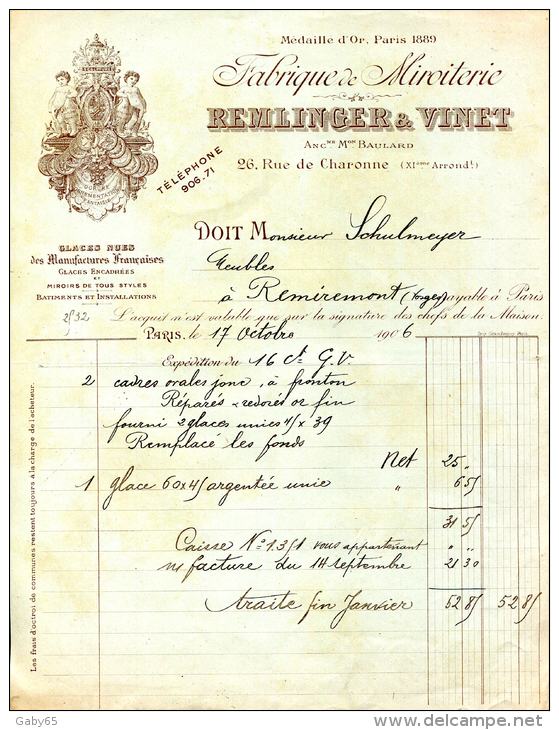 Médaille d'Or, Paris 1889
Fabrique de Miroiterie
REMLINGER & VINET
ANCNE MON BAULARD
26, Rue de Charonne (XIème Arrondt.)
TÉLÉPHONE
906.71
SCULPTURE
DORURE
ORNEMENTATION
FANTAISIE
GLACES NUES
des Manufactures Françaises
GLACES ENCADRÉES
ET
MIROIRS DE TOUS STYLES
BATIMENTS ET INSTALLATIONS
2532
DOIT Monsieur Schulmeyer
Meubles
à Remiremont (Vosges) payable à Paris
L'acquit n'est valable que sur la signature des chefs de la Maison.
PARIS, le 17 Octobre 1906
Expédition du 16 ct G.V.
2 cadres ovales jonc, à fronton
Réparés & redorés or fin
fourni 2 glaces unies 45 x 39
Remplacé les fonds
Net 25 "
1 glace 60x45 argentée unie " 6 55
31 55
Caisse No 1351 vous appartenant " "
n/ facture du 14 septembre 21 30
traite fin Janvier 52 85 52 85
Les frais d'octroi de communes restent toujours à la charge de l'acheteur.
Gaby65
www.delcampe.net